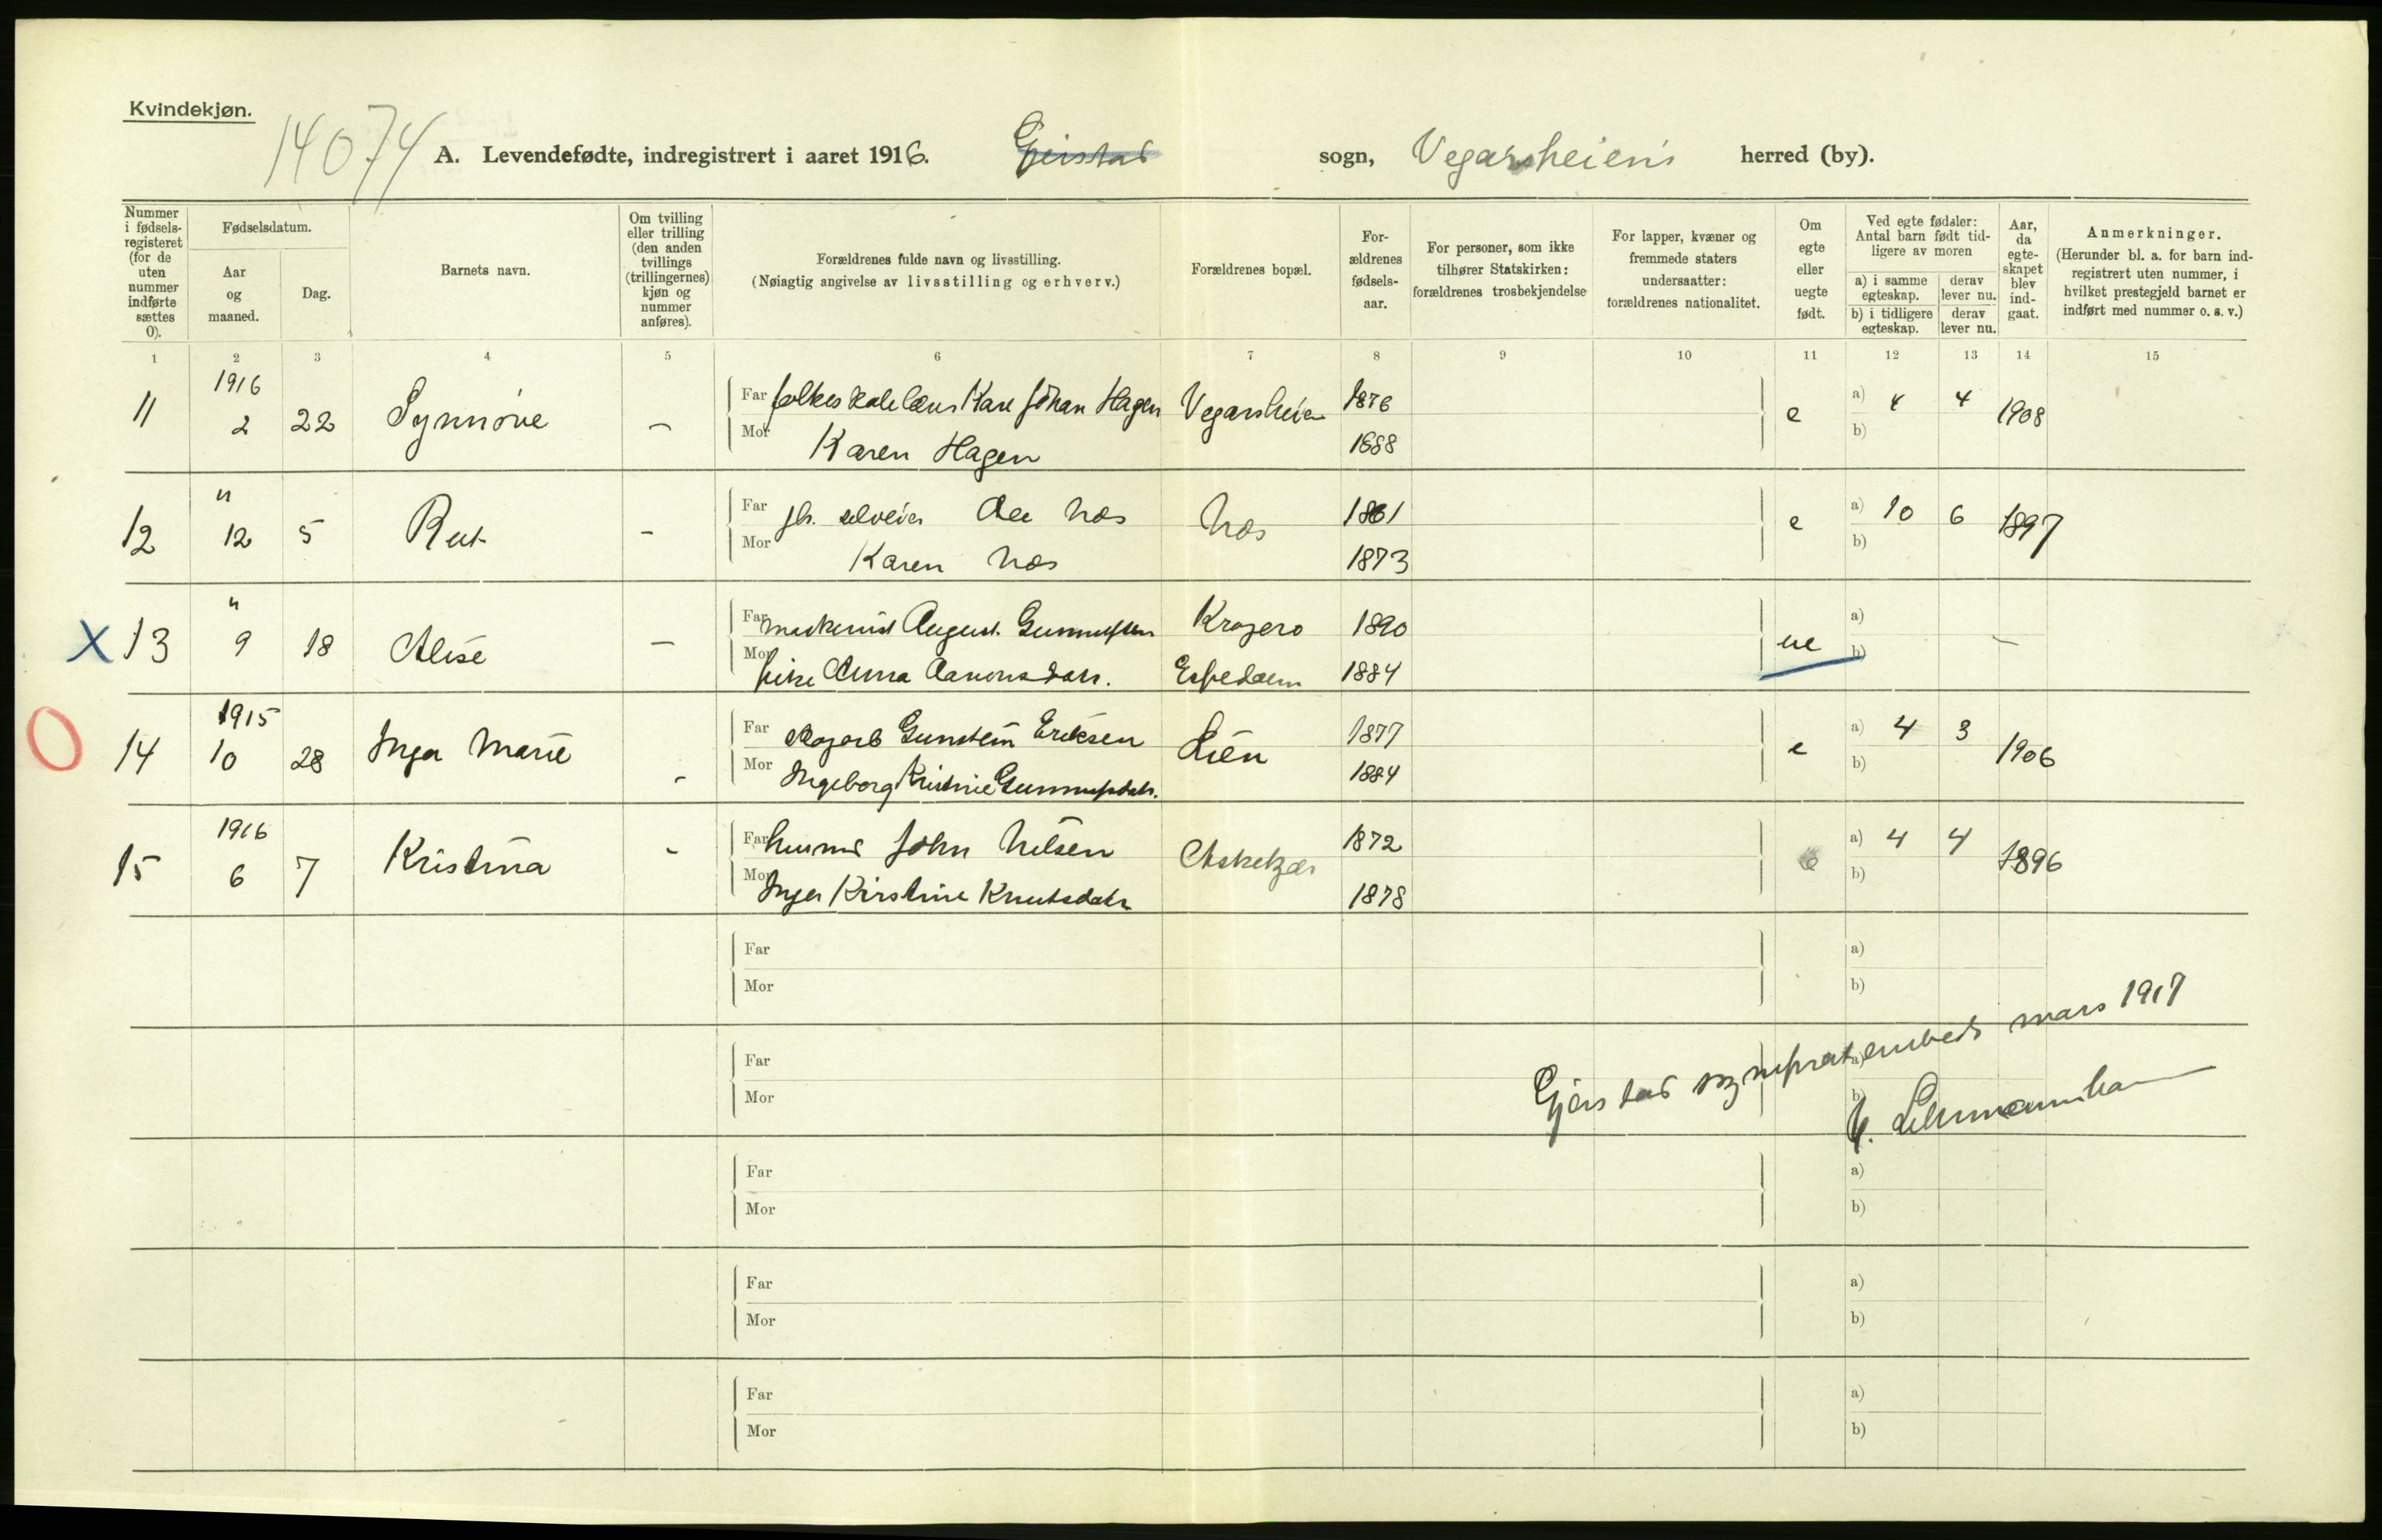 Kvindekjøn.
14074
A. Levendefødte, indregistrert i aaret 1916. Gjerstad sogn, Vegarsheien's herred (by).
Nummer i fødsels-registeret (for de uten nummer indførte sættes 0).
Fødselsdatum.
Aar og maaned.
Dag.
Barnets navn.
Om tvilling eller trilling (den anden tvillings (trillingernes) kjøn og nummer anføres).
Forældrenes fulde navn og livsstilling.
(Nøiagtig angivelse av livsstilling og erhverv.)
Forældrenes bopæl.
For-ældrenes fødsels-aar.
For personer, som ikke tilhører Statskirken: forældrenes trosbekjendelse
For lapper, kvæner og fremmede staters undersaatter: forældrenes nationalitet.
Om egte eller uegte født.
Ved egte fødsler: Antal barn født tid-ligere av moren
a) i samme egteskap.
derav lever nu.
b) i tidligere egteskap.
derav lever nu.
Aar, da egte-skapet blev ind-gaat.
Anmerkninger.
(Herunder bl. a. for barn ind-registrert uten nummer, i hvilket prestegjeld barnet er indført med nummer o. s. v.)
1 2 3 4 5 6 7 8 9 10 11 12 13 14 15
11 1916 2 22 Synnøve - Far Johan Hagen Vegarsheien 1876 e a) 4 4 1908
Mor Karen Hagen 1888 b)
12 " 12 5 Rut - Far Næs Næs 1861 e a) 10 6 1897
Mor Karen Næs 1873 b)
X 13 " 9 18 Alise - Far maskinist August Gunnufsen Kragerø 1890 ue a) -
Mor pike Anna Aanonsdatr. Espedalen 1884 b)
O 14 1915 10 28 Inga Marie - Far Gunstein Eriksen Lien 1877 e a) 4 3 1906
Mor Ingeborg Kristine Gunnufsdatr. 1884 b)
15 1916 6 7 Kristina - Far John Nilsen 1872 e a) 4 4 1896
Mor Inger Kirstine Knutsdatr 1878 b)
Far a)
Mor b)
Gjerstad sogneprestembede mars 1917
Far a)
Mor b)
Far a)
Mor b)
Far a)
Mor b)
Far a)
Mor b)